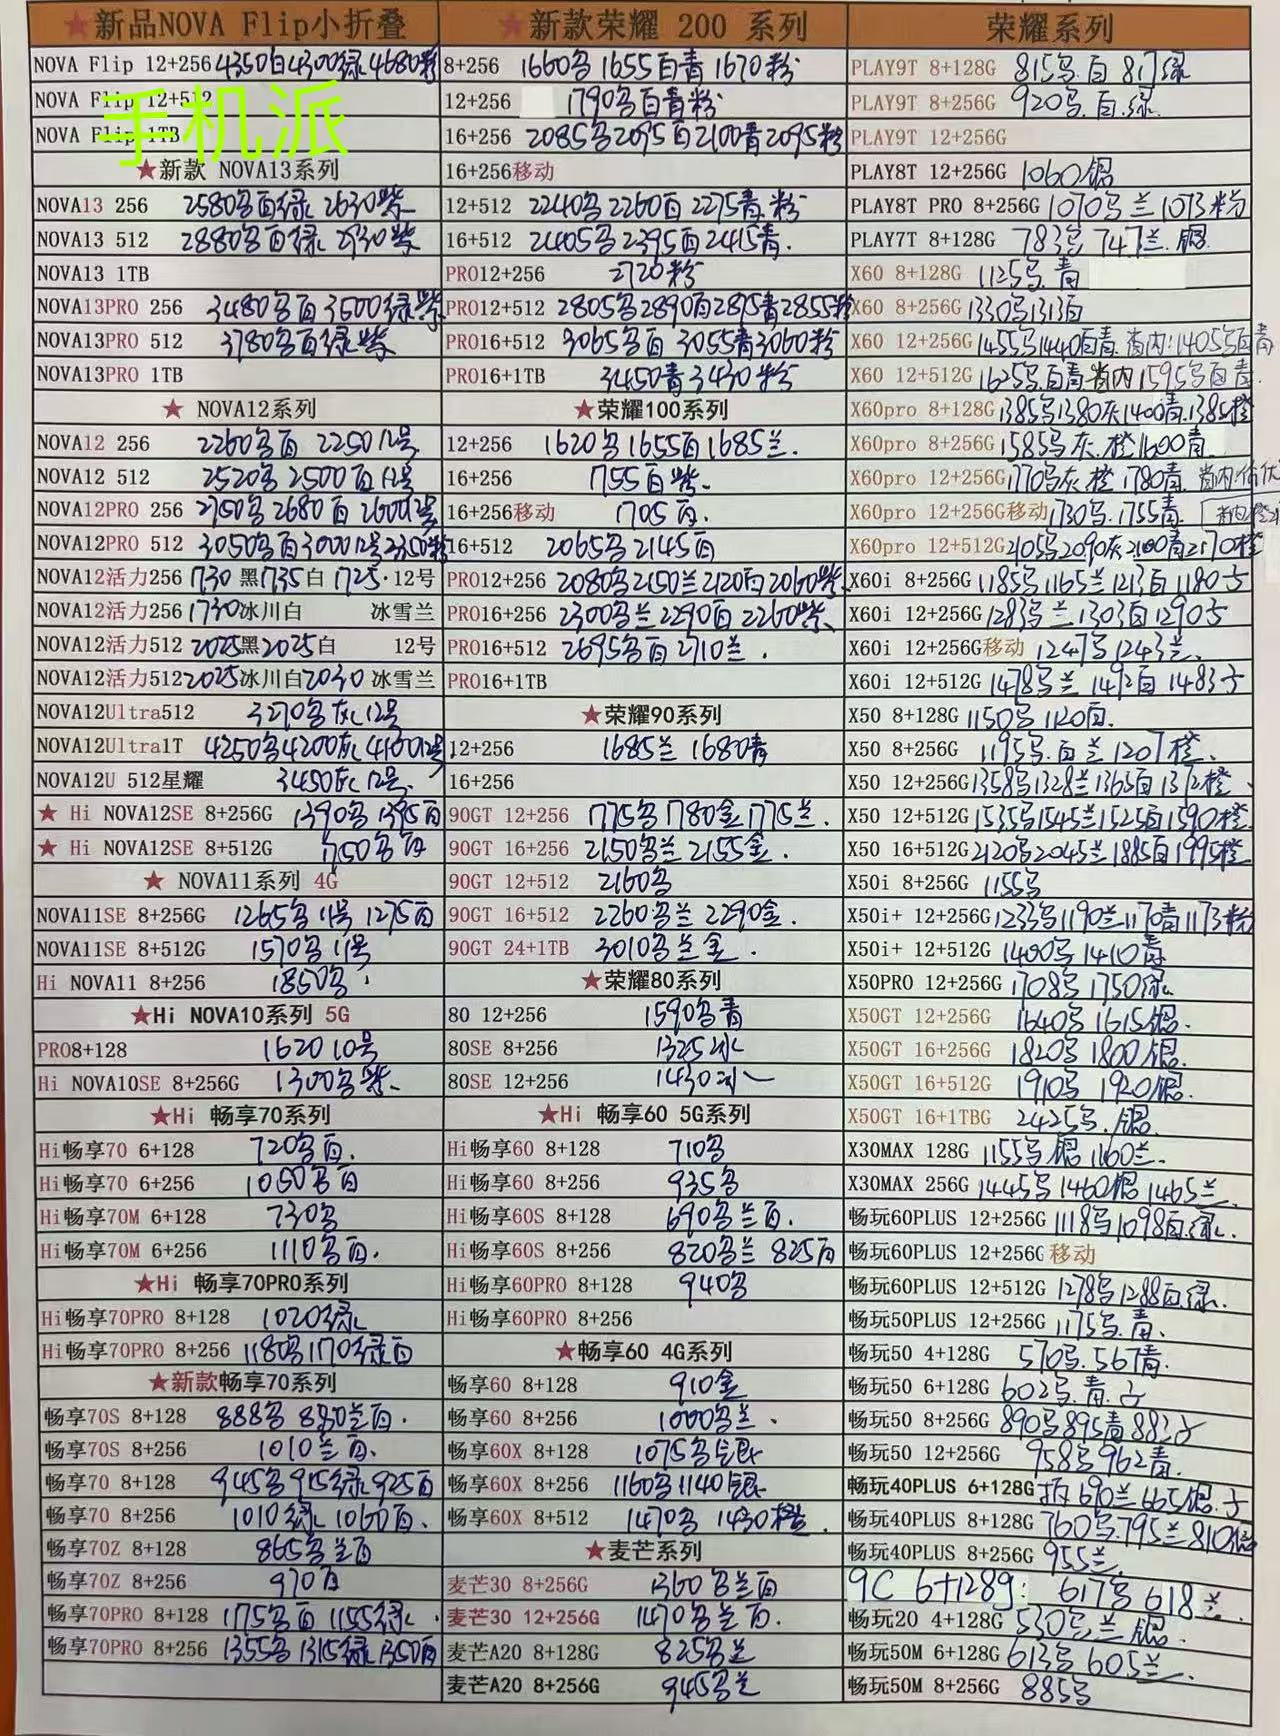 ★新品NOVA Flip小折叠
NOVA Flip 12+256 4350白4300绿4680粉
NOVA Flip 12+512
手机派
NOVA Flip 1TB
★新款 NOVA13系列
NOVA13 256 2580名百绿 2630紫
NOVA13 512 2880名百绿 2930紫
NOVA13 1TB
NOVA13PRO 256 3480名百3500绿紫
NOVA13PRO 512 3780名百绿紫
NOVA13PRO 1TB
★ NOVA12系列
NOVA12 256 2260名百 2250 12号
NOVA12 512 2520名2500百12号
NOVA12PRO 256 2750名2680百2600 12号
NOVA12PRO 512 3050名百3000 12号2350粉
NOVA12活力256 1730 黑1735白 1725·12号
NOVA12活力256 1730冰川白 冰雪兰
NOVA12活力512 2025黑2025白 12号
NOVA12活力512 2025冰川白2030 冰雪兰
NOVA12Ultra512 3270名灰12号
NOVA12Ultra1T 4250名4200灰4100 12号
NOVA12U 512星耀 3450灰12号.
★ Hi NOVA12SE 8+256G 1390名1395百
★ Hi NOVA12SE 8+512G 1750名百
★ NOVA11系列 4G
NOVA11SE 8+256G 1265名11号 1275百
NOVA11SE 8+512G 1570名11号
Hi NOVA11 8+256 1850名
★Hi NOVA10系列 5G
PRO8+128 1620 10号
Hi NOVA10SE 8+256G 1300名紫.
★Hi 畅享70系列
Hi畅享70 6+128 720名百.
Hi畅享70 6+256 1050名百
Hi畅享70M 6+128 730名
Hi畅享70M 6+256 1110名百.
★Hi 畅享70PRO系列
Hi畅享70PRO 8+128 1020绿
Hi畅享70PRO 8+256 1180名1170绿百
★新款畅享70系列
畅享70S 8+128 888名880兰百.
畅享70S 8+256 1010兰百.
畅享70 8+128 945名915绿925百
畅享70 8+256 1010绿1060百.
畅享70Z 8+128 865名兰百
畅享70Z 8+256 970百
畅享70PRO 8+128 1175名百1155绿.
畅享70PRO 8+256 1355名1315绿1350百
★新款荣耀 200 系列
8+256 1660名1655百青1670粉
12+256 1790名百青粉
16+256 2085名2095百2100青2095粉
16+256移动
12+512 2240名2260百2275青.粉
16+512 2405名2395百2415青.
PRO12+256 2720粉
PRO12+512 2805名2890百2875青2855粉
PRO16+512 3065名百3055青3060粉
PRO16+1TB 3450青3430粉
★荣耀100系列
12+256 1620名1655百1685兰.
16+256 1755百紫.
16+256移动 1705百.
16+512 2065名2145百
PRO12+256 2080名2150兰2120百2060紫.
PRO16+256 2300名兰2290百2260紫.
PRO16+512 2695名百2710兰.
PRO16+1TB
★荣耀90系列
12+256 1685兰1680青
16+256
90GT 12+256 1775名1780金1775兰.
90GT 16+256 2150名兰2155金.
90GT 12+512 2160名
90GT 16+512 2260名兰2290金.
90GT 24+1TB 3010名兰金.
★荣耀80系列
80 12+256 1590名青
80SE 8+256 1325冰
80SE 12+256 1430冰
★Hi 畅享60 5G系列
Hi畅享60 8+128 710名
Hi畅享60 8+256 935名
Hi畅享60S 8+128 690名兰百.
Hi畅享60S 8+256 820名兰 825百
Hi畅享60PRO 8+128 940名
Hi畅享60PRO 8+256
★畅享60 4G系列
畅享60 8+128 910金
畅享60 8+256 1000名兰.
畅享60X 8+128 1075名银
畅享60X 8+256 1160名1140银
畅享60X 8+512 1470名 1430橙.
★麦芒系列
麦芒30 8+256G 1360名兰百
麦芒30 12+256G 1470名兰百.
麦芒A20 8+128G 825名兰
麦芒A20 8+256G 945名兰
荣耀系列
PLAY9T 8+128G 815名.百 817绿
PLAY9T 8+256G 920名.百.绿
PLAY9T 12+256G
PLAY8T 12+256G 1060银
PLAY8T PRO 8+256G 1070名兰1073粉
PLAY7T 8+128G 783名747兰.银.
X60 8+128G 1125名.青
X60 8+256G 1330名1313百
X60 12+256G 1455名1440百青.省内:1405名百青
X60 12+512G 1625名.百青.省内1595名百青.
X60pro 8+128G 1385名1380灰1400青.1385橙
X60pro 8+256G 1585名灰.橙1600青.
X60pro 12+256G 1770名灰.橙1780青.省内
X60pro 12+256G移动 1730名.1755青.
X60pro 12+512G 2105名2090灰2100青2170橙
X60i 8+256G 1185名1165兰1213百1180子
X60i 12+256G 1283名兰1303百1290子
X60i 12+256G移动 1247名1243兰.
X60i 12+512G 1478名兰1492百1483子
X50 8+128G 1150名1120百.
X50 8+256G 1195名.百兰1207橙.
X50 12+256G 1358名1328兰1365百1372橙.
X50 12+512G 1535名1545兰1525百1590橙.
X50 16+512G 2120名2045兰1885百1995橙
X50i 8+256G 1155名
X50i+ 12+256G 1233名1190兰1170青1173粉
X50i+ 12+512G 1400名1410青.
X50PRO 12+256G 1708名1750绿.
X50GT 12+256G 1640名1615银.
X50GT 16+256G 1820名1800银.
X50GT 16+512G 1910名 1920银.
X50GT 16+1TBG 2425名.银.
X30MAX 128G 1155名银1160兰.
X30MAX 256G 1445名1460银1465兰.
畅玩60PLUS 12+256G 1118名1098百.绿.
畅玩60PLUS 12+256G 移动
畅玩60PLUS 12+512G 1278名1288百绿.
畅玩50PLUS 12+256G 1175名.青.
畅玩50 4+128G 570名.567青.
畅玩50 6+128G 602名.青.子
畅玩50 8+256G 890名895青883子
畅玩50 12+256G 958名962青.
畅玩40PLUS 6+128G 690兰665银.子
畅玩40PLUS 8+128G 760名.795兰810银
畅玩40PLUS 8+256G 955兰
9C 6+128g: 617名618兰.
畅玩20 4+128G 530名.兰.银.
畅玩50M 6+128G 613名605兰.
畅玩50M 8+256G 885名